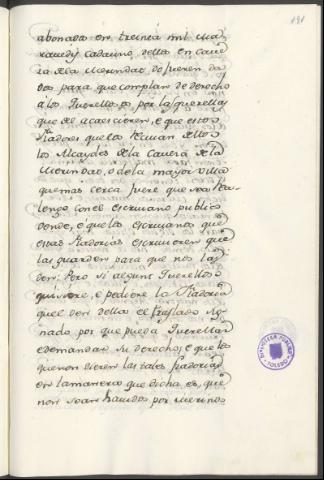 191
abonados en treinta mil ma-
ravedis cada uno dellos en cavе-
za de la Merindad do fueren da-
dos para que complan de derecho
a los Querellosos por las querellas
que de acaescieren, e que estos
fiadores que los reciuan ellos
los Alcaydes de la Cavеza de la
Merindad, o de la mayor villa
que mas cerca fuere que sea Rea-
lengo con el escriuano publico
donde, e que los escriuanos que
estas fiadorias escriuieren que
las guarden para que nos las
den: Pero si algunt Querelloso
quisiere, e pediere la fiadoria
quel den della el traslado sig-
nado por que pueda Querellar
e demandar su derecho, e que los
que non dieren las tales fiadorias
en la manera que dicha es, que
non sean hauidos por merinos
BIBLIOTECA PUBLICA
TOLEDO